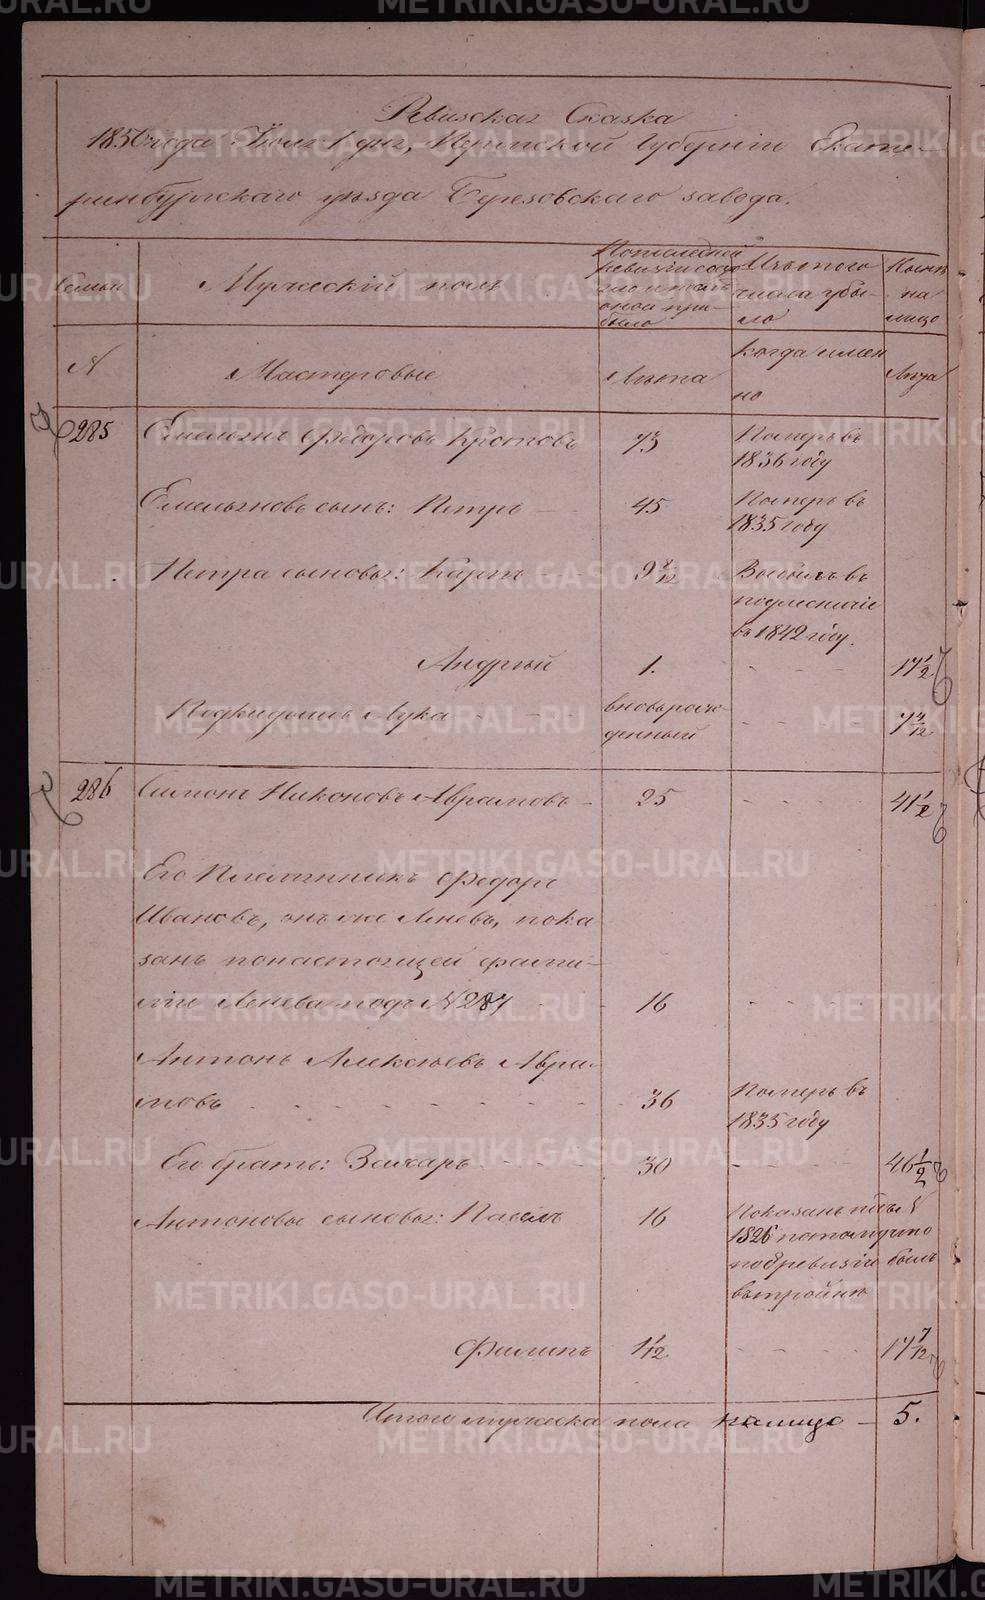 Ревизская Сказка
1850 года Iюля 1 дня, Пермской Губернiи Екате-
ринбургскаго уѣзда Березовскаго завода.
Семьи
Мужескiй полъ
По последней
ревизiи состо
яло и после
оной при-
было
Изъ того
числа убы-
ло
Нынѣ
на
лицо
N
Мастеровые
Лѣта
когда имен
но
Лѣта
285 Емельянъ Федоровъ Кротовъ 73 Померъ въ
1836 году
Емельяновъ сынъ: Петръ 45 Померъ въ
1835 году
Петра сыновья: Карпъ 9 8/12 Выбылъ въ
подлесничiе
въ 1842 году.
Андрей 1. 17 1/2
Подкидышъ Лука вноворож-
денный 7 4/12
286 Симонъ Никоновъ Аврамовъ 25 41 1/2
Его Племянникъ Федоръ
Ивановъ, онъ же Леневъ, пока
занъ понастоящей фами-
лiи Ленева подъ N 287 16
Антонъ Алексѣевъ Авра-
мовъ 36 Померъ въ
1835 году
Его братъ: Захаръ 30 46 1/2
Антоновы сыновья: Павелъ 16 Показанъ подъ N
1826 потому что
по 8 ревизiи былъ
въ тройнѣ
Филипъ 1 1/12 17 7/12
Итого мужеска пола налицо — 5.
METRIKI.GASO-URAL.RU